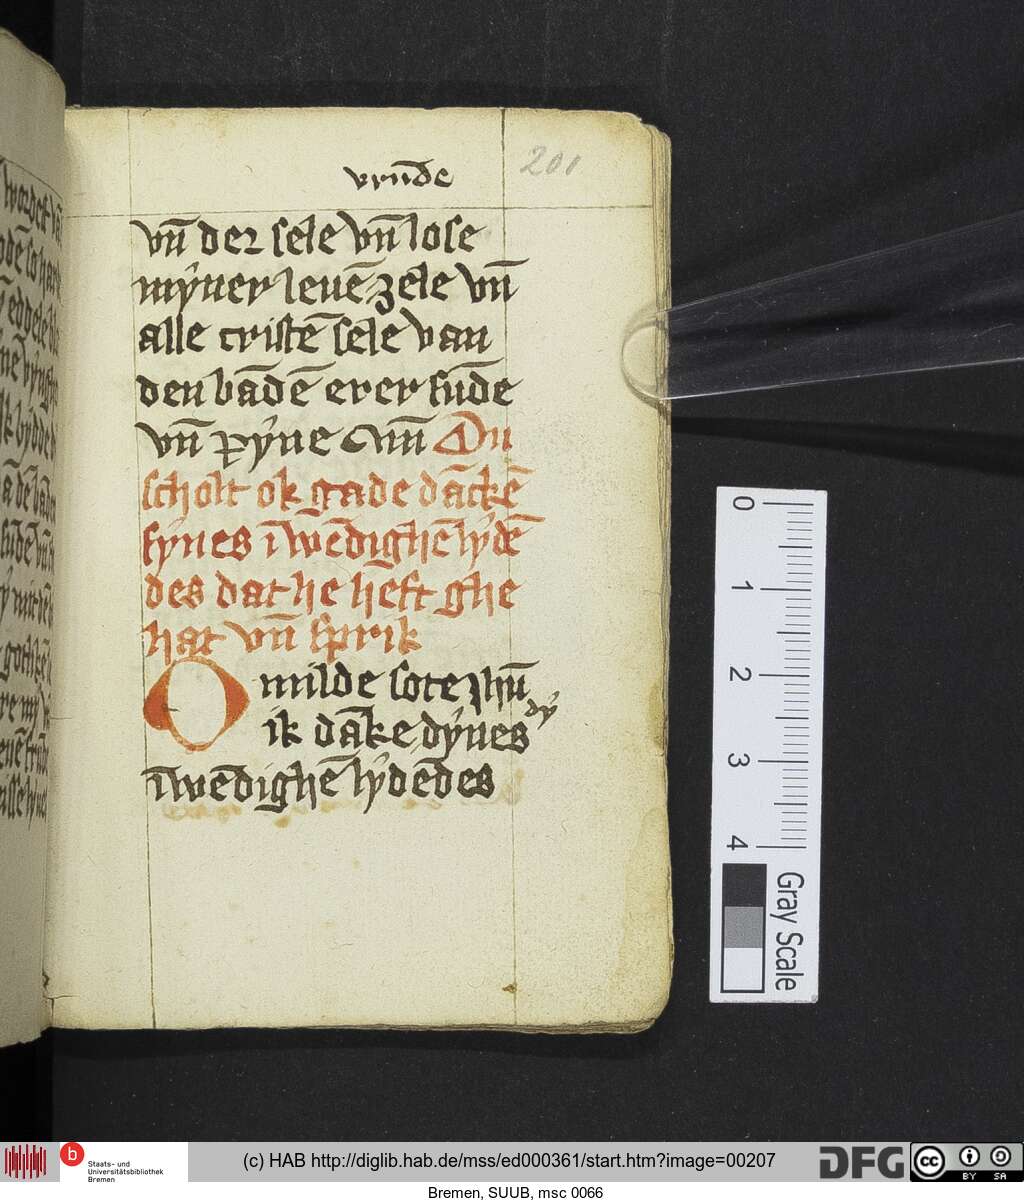 vrūde
201
vn̄ der sele vn̄ lose
mẏner leuē zele vn̄
alle cristē sele van
den bādē erer sūde
vn̄ pẏne Du
scholt ok gade dācke̅
sẏnes īwēdighē lẏdē
des dat he heft ghe
hat vn̄ sprik
O milde sote ihū
ik dāke dẏnes dẏ
īwēdighē lẏdēdes
0
1
2
3
4
Gray Scale
b
Staats- und
Universitätsbibliothek
Bremen
(c) HAB http://diglib.hab.de/mss/ed000361/start.htm?image=00207
DFG
cc
BY SA
Bremen, SUUB, msc 0066